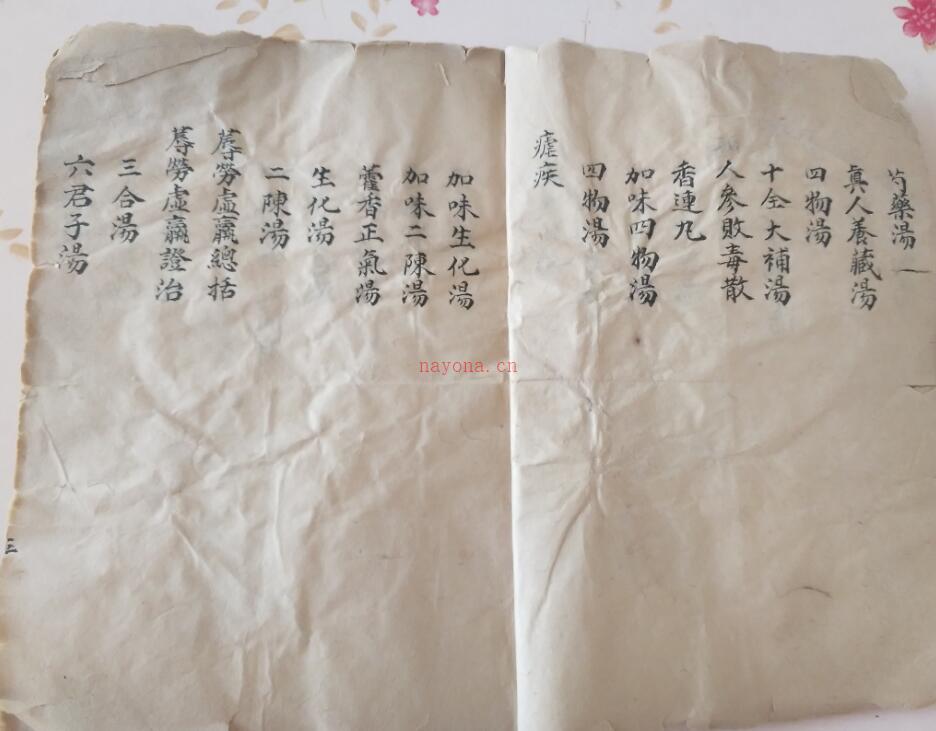 芍藥湯
真人養藏湯
四物湯
十全大補湯
人參敗毒散
香連丸
加味四物湯
四物湯
瘧疾
加味生化湯
加味二陳湯
藿香正氣湯
生化湯
二陳湯
蓐勞虛羸總括
蓐勞虛羸證治
三合湯
六君子湯
三
nayona.cn